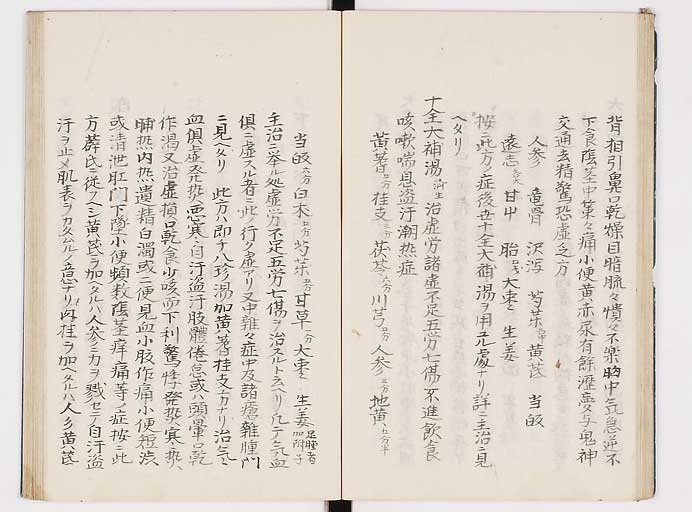 背相引鼻口乾燥目暗䀮々憒々不樂胸中氣急逆不
下食陰莖中策々痛小便黄赤尿有餘瀝夢与鬼神
交通去精驚恐虚乏方
人参 竜骨 沢瀉 芍薬 黄芪 当皈
遠志 甘艸 胎 大枣 生姜
按ニ此方ノ症後世十全大補湯ヲ用ユル處ナリ詳ニ主治ニ見
ヘタリ
十全大補湯 済生 治虚労諸虚不足五労七傷不進飲食
咳嗽喘息盗汗潮热症
黄耆 桂支 茯苓 川芎 人参 地黄
当皈 白木 芍薬 甘草 大枣 生姜 足腫者加附子
主治ニ挙ル処虚労不足五労七傷ヲ治スルト云ヘリ凡テ気血
俱ニ虚スル者ニ此ノ行ク虚アリ又中雜々症中及諸瘡雜腫門
ニ見ヘタリ 此方ハ即チ八珍湯加黄耆桂支方ナリ治気々
血俱虚発热悪寒自汗盗汗肢體倦怠或ハ頭暈口乾
作渇又治虚損口乾食少咳而下利驚悸発热寒热
晡热内热遺精白濁或二便見血小腹作痛小便短渋
或清泄肛門下墜小便頻数陰莖痒痛等ノ症按ニ此
方薛氏ニ従フヘシ黄芪ヲ加ヘタルハ人参ニ力ヲ戮セテ自汗盗
汗ヲ止メ肌表ヲカタムルノ意ナリ肉桂ヲ加ヘタルハ人参黄芪